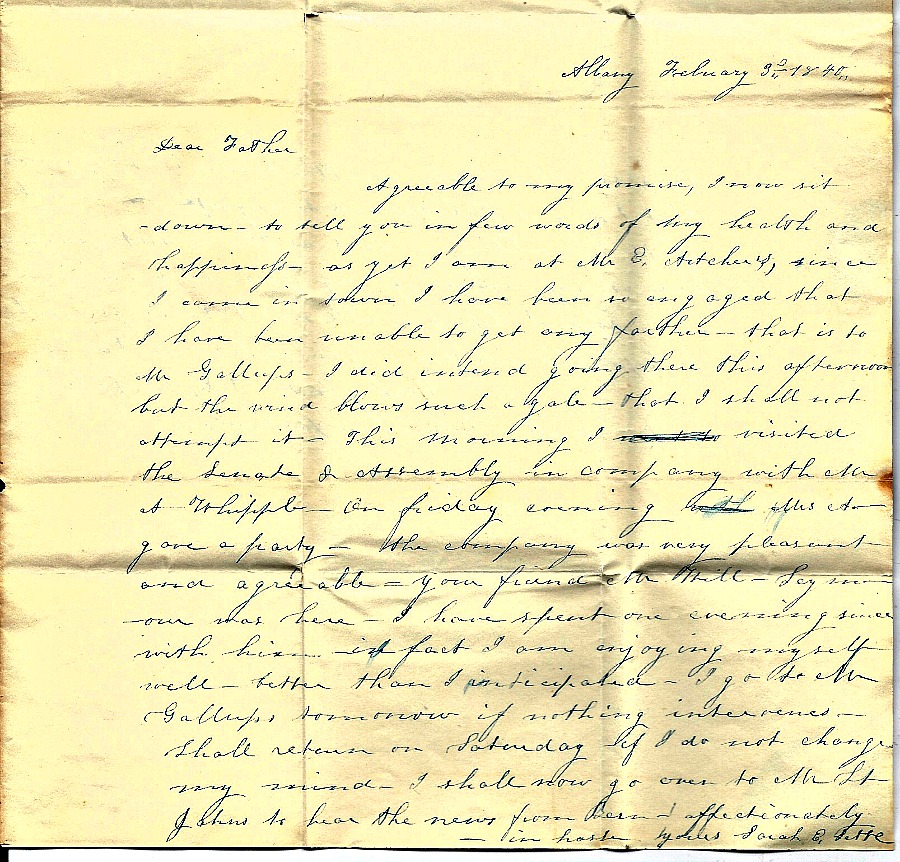 Albany February 3d 1840,
Dear Father
Agreeable to my promise, I now sit
-down - to tell you in few words of my health and
happiness - as yet I am at Mr E. Artcher's, since
I came in town I have been so engaged that
I have been unable to get any farther - that is to
Mr Gallups - I did intend going there this afternoon
but the wind blows such a gale - that I shall not
attempt it - This morning I visited
the Senate & Assembly in company with Mr
A - Whipple - On friday evening Mrs A-
gave a party - the company was very pleasant
and agreeable - your friend Mr Will - Seym-
-our was here - I have spent one evening since
with him - in fact I am enjoying myself
well - better than I anticipated - I go to Mr
Gallups tomorrow if nothing intervenes -
Shall return on Saturday if I do not change
my mind - I shall now go over to Mr St
Johns to hear the news from Bern - affectionately
- in haste yours Sarah E.